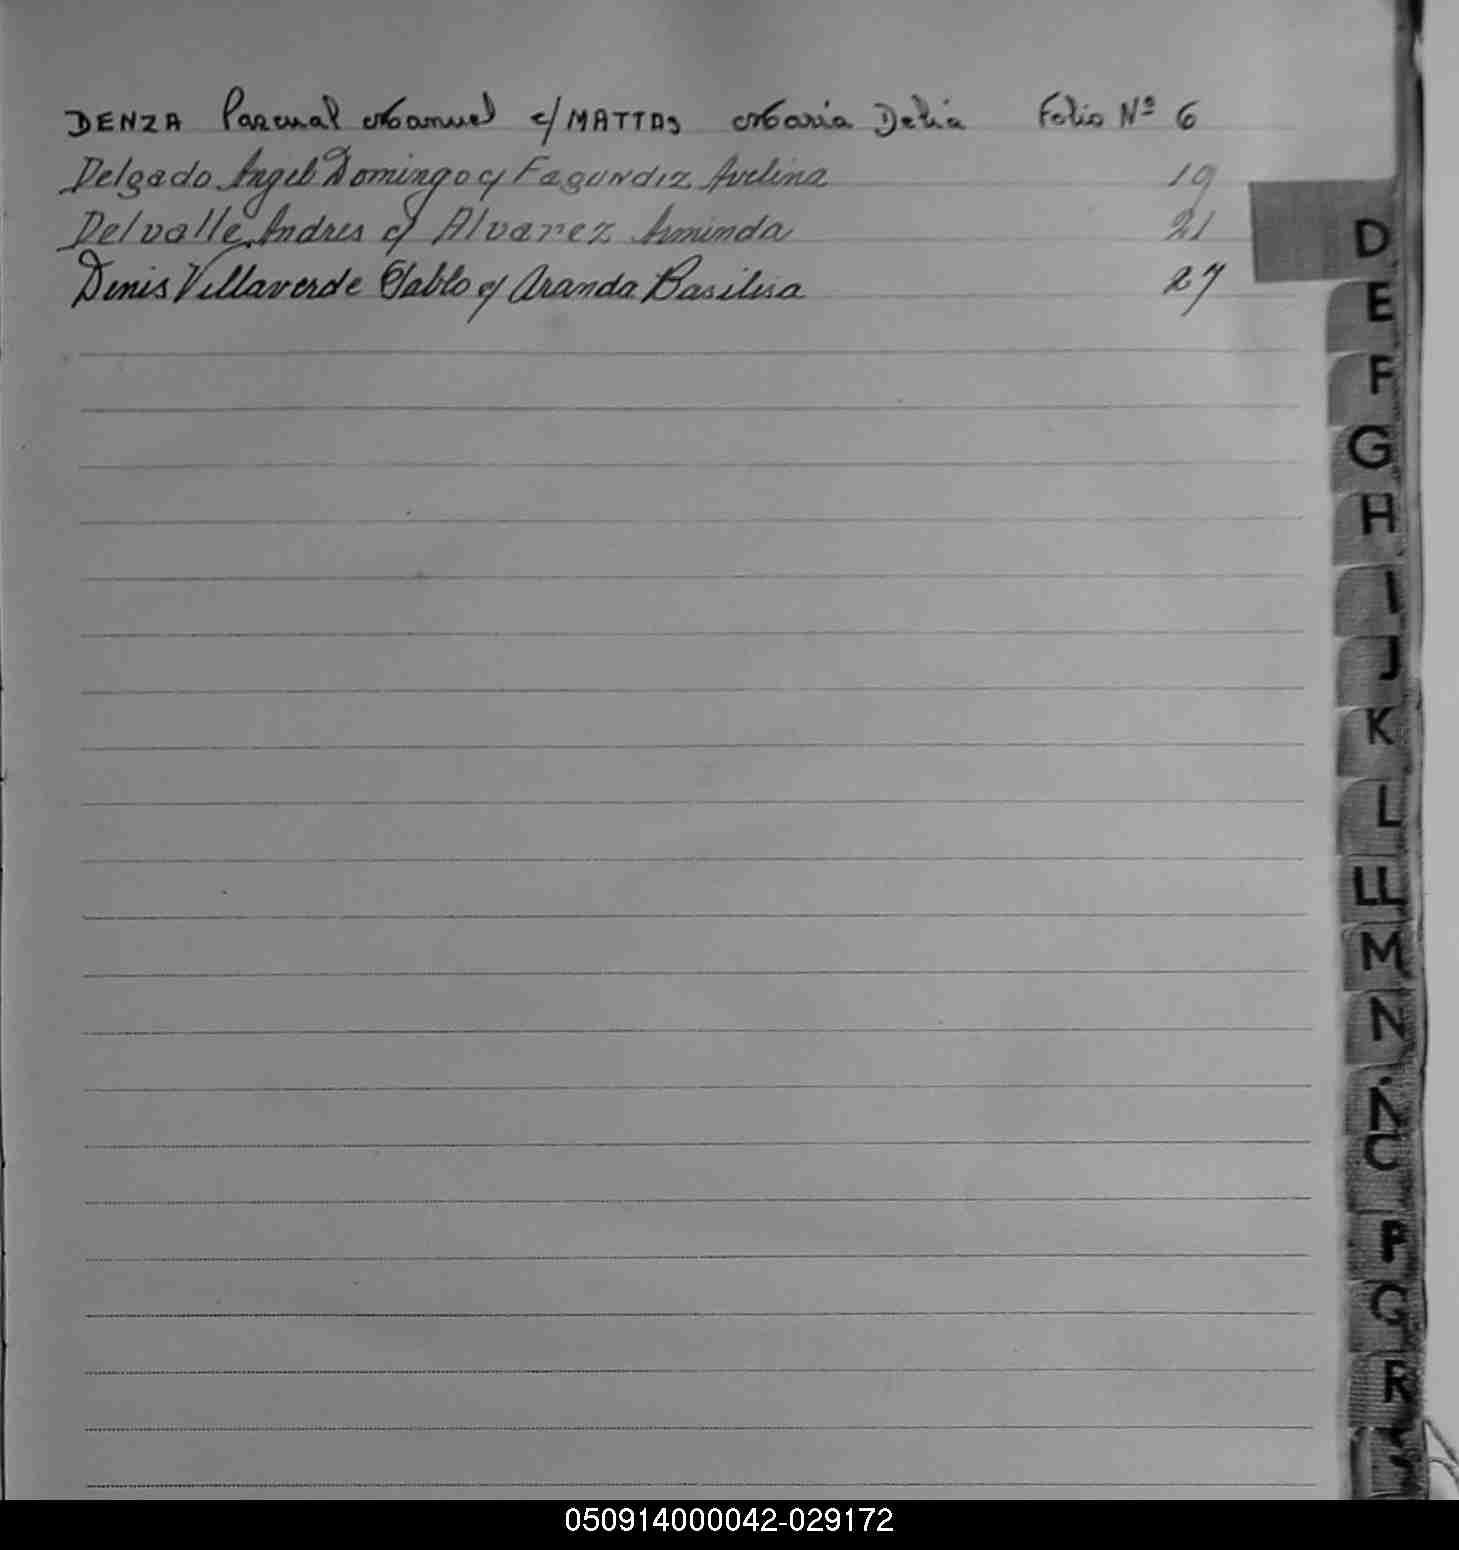 DENZA Pascual Manuel c/ MATTAS Maria Delia Folio Nº 6
Delgado Angel Domingo c/ Fagundiz Avelina 19
Delvalle Andres c/ Alvarez Arminda 21
Denis Villaverde Pablo c/ Aranda Basilisa 27
D
E
F
G
H
I
J
K
L
LL
M
N
Ñ
P
R
050914000042-029172